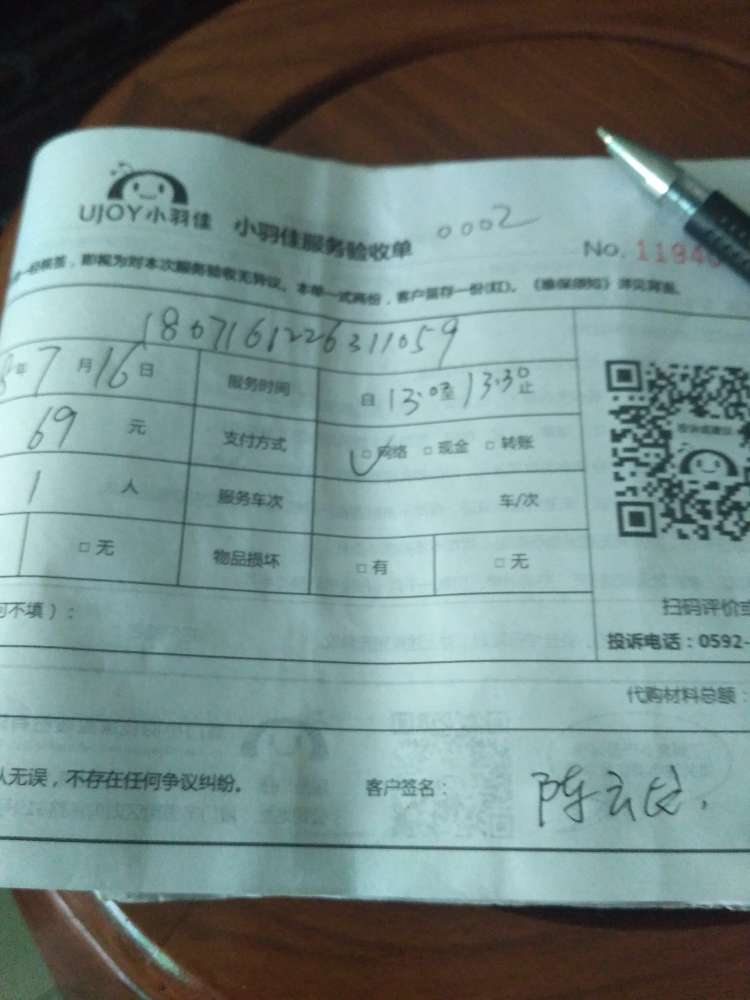 UJOY小羽佳 小羽佳服务验收单 0002
No. 11946
经核签，即视为对本次服务验收无异议。本单一式两份，客户留存一份(红)。《维保须知》详见背面。
1807161226311059
8年7月16日 服务时间 自13:03至13:30止
69元 支付方式 □网络 □现金 □转账
1人 服务车次 车/次
□无 物品损坏 □有 □无
可不填）：
扫码评价或
投诉电话：0592-
代购材料总额：
认无误，不存在任何争议纠纷。 客户签名：